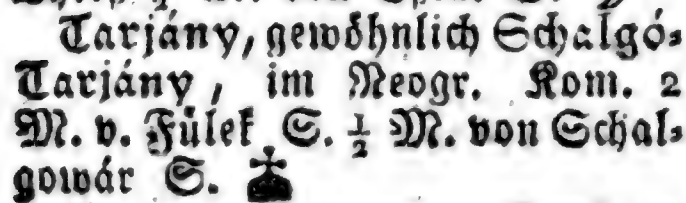 Tarjány, gewöhnlich Schalgó⸗
Tarjány, im Neogr. Kom. 2
M. v. Fülek S. ½ M. von Schal⸗
gowár S.